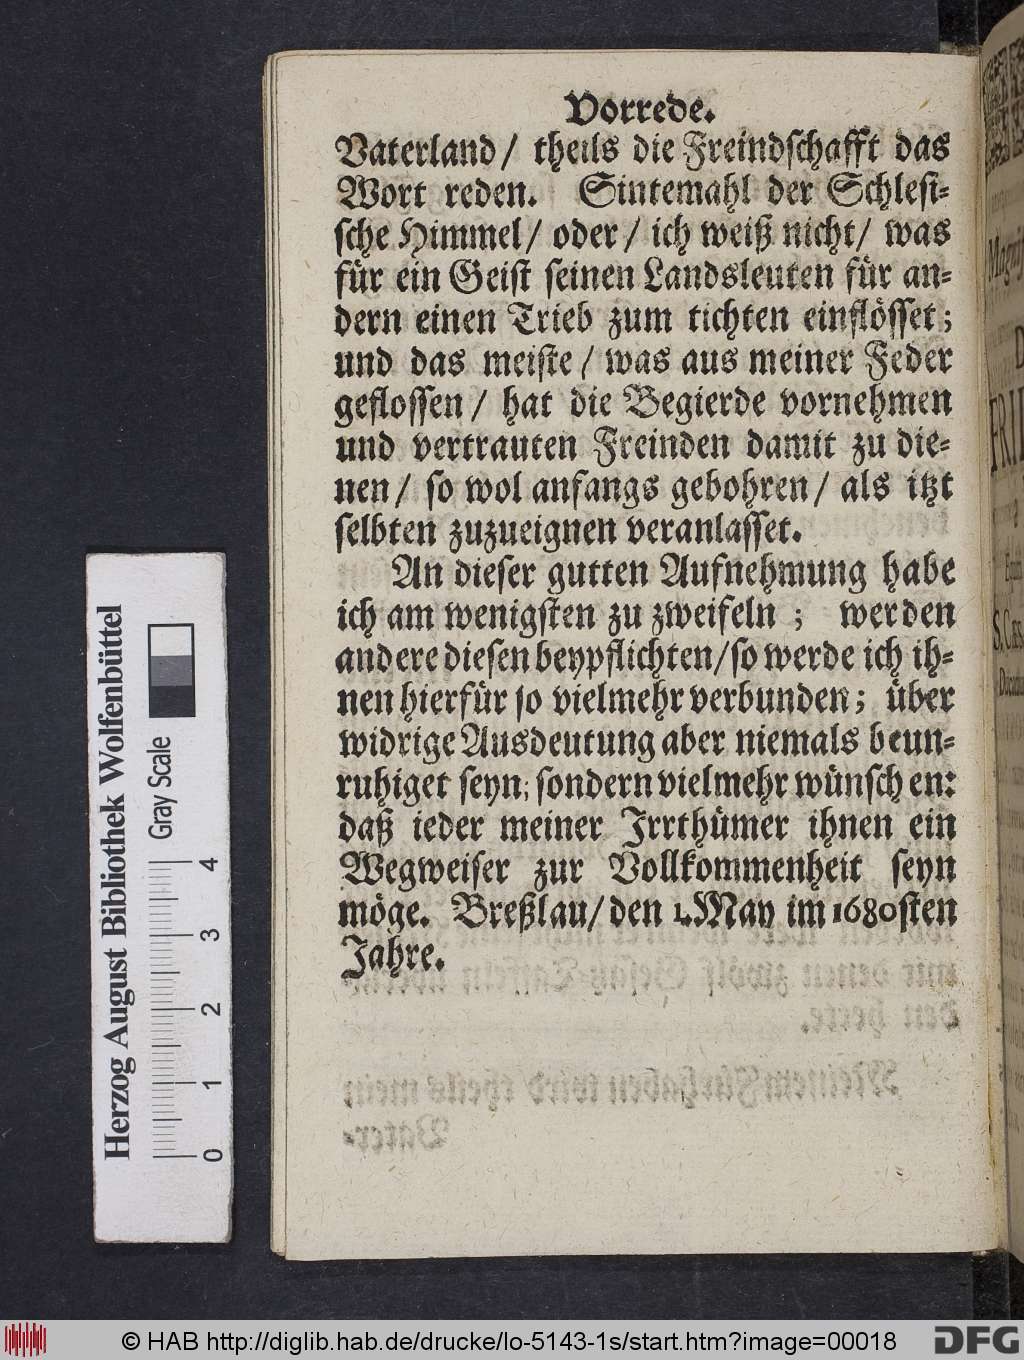 Vorrede.
Vaterland/ theils die Freindschafft das
Wort reden. Sintemahl der Schlesi-
sche Himmel/ oder/ ich weiß nicht/ was
für ein Geist seinen Landsleuten für an-
dern einen Trieb zum tichten einflösset;
und das meiste/ was aus meiner Feder
geflossen/ hat die Begierde vornehmen
und vertrauten Freinden damit zu die-
nen/ so wol anfangs gebohren/ als itzt
selbten zuzueignen veranlasset.
An dieser gutten Aufnehmung habe
ich am wenigsten zu zweifeln; werden
andere diesen beypflichten/ so werde ich ih-
nen hierfür so vielmehr verbunden; über
widrige Ausdeutung aber niemals beun-
ruhiget seyn; sondern vielmehr wünschen:
daß ieder meiner Irrthümer ihnen ein
Wegweiser zur Vollkommenheit seyn
möge. Breßlau/ den 1. May im 1680sten
Jahre.
Herzog August Bibliothek Wolfenbüttel
Gray Scale
0 1 2 3 4
© HAB http://diglib.hab.de/drucke/lo-5143-1s/start.htm?image=00018
DFG